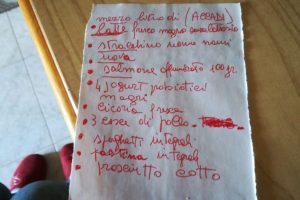 mezzo litro di (ACCADI)
latte fresco magro senza lattosio
stracchino nonno nanni
uova
salmone affumicato 100 gr.
4 yogurt probiotici
magri
cicoria fresca
3 cosce di pollo
spaghetti integrali
pastina integrale
prosciutto cotto